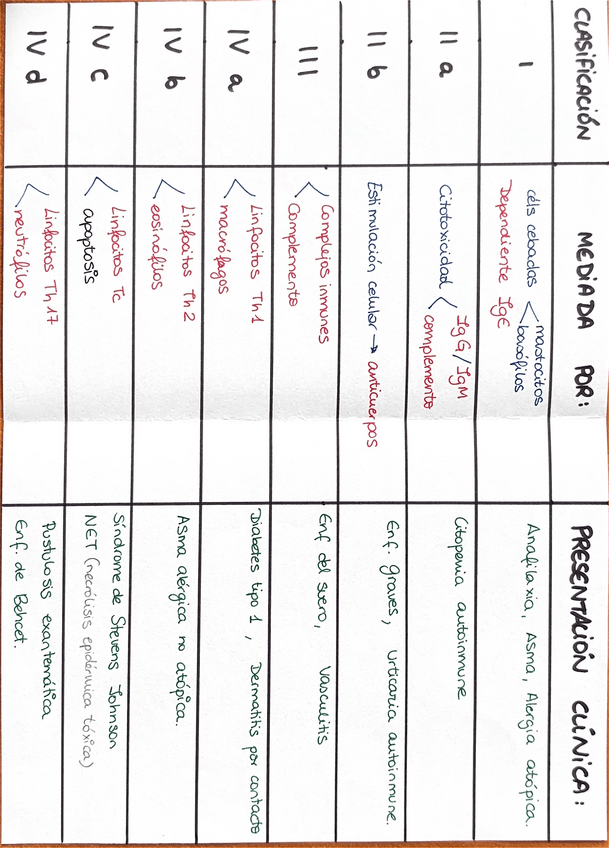 CLASIFICACIÓN MEDIADA POR: PRESENTACIÓN CLÍNICA:
I
céls cebadas < mastocitos
basófilos
Dependiente IgE
Anafilaxia, Asma, Alergia atópica.
II a
Citotoxicidad < IgG/IgM
complemento
Citopenia autoinmune
II b
Estimulación celular → anticuerpos
Enf. graves, urticaria autoinmune.
III
< Complejos inmunes
Complemento
Enf del suero, Vasculitis
IV a
< Linfocitos Th1
macrófagos
Diabetes tipo 1, Dermatitis por contacto
IV b
< Linfocitos Th2
eosinófilos
Asma alérgica no atópica.
IV c
< Linfocitos Tc
apoptosis
Síndrome de Stevens Johnson
NET (necrólisis epidérmica tóxica)
IV d
< Linfocitos Th17
neutrófilos
Pustulosis exantemática
Enf. de Behcet.